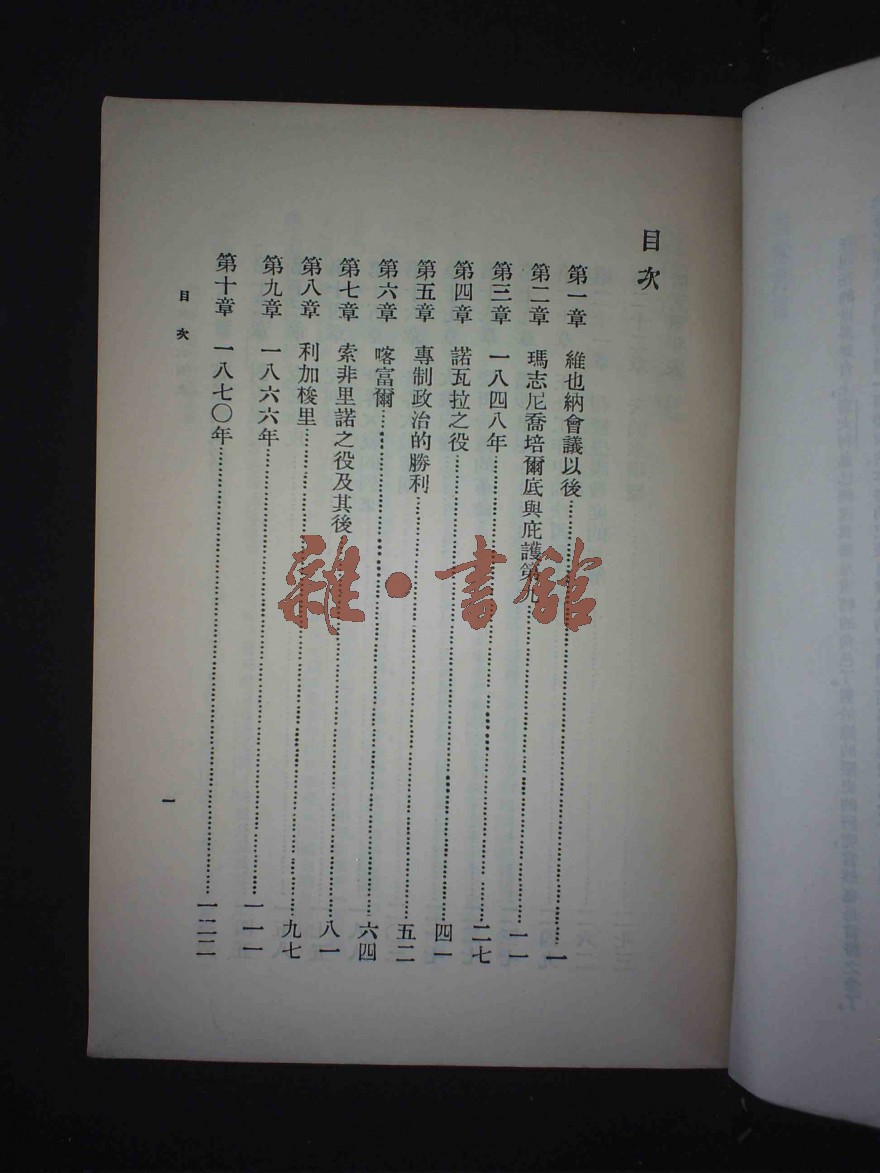 目次
第一章　維也納會議以後……一
第二章　瑪志尼喬培爾底與庇護第九……一一
第三章　一八四八年……二七
第四章　諾瓦拉之役……四一
第五章　專制政治的勝利……五二
第六章　喀富爾……六四
第七章　索非里諾之役及其後……八一
第八章　利加梭里……九七
第九章　一八六六年……一一一
第十章　一八七〇年……一二二
目次
一
雜·書館